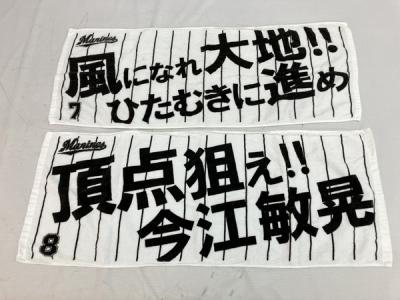 Marines
風になれ大地!!
7 ひたむきに進め
Marines
頂点狙え!!
8 今江敏晃